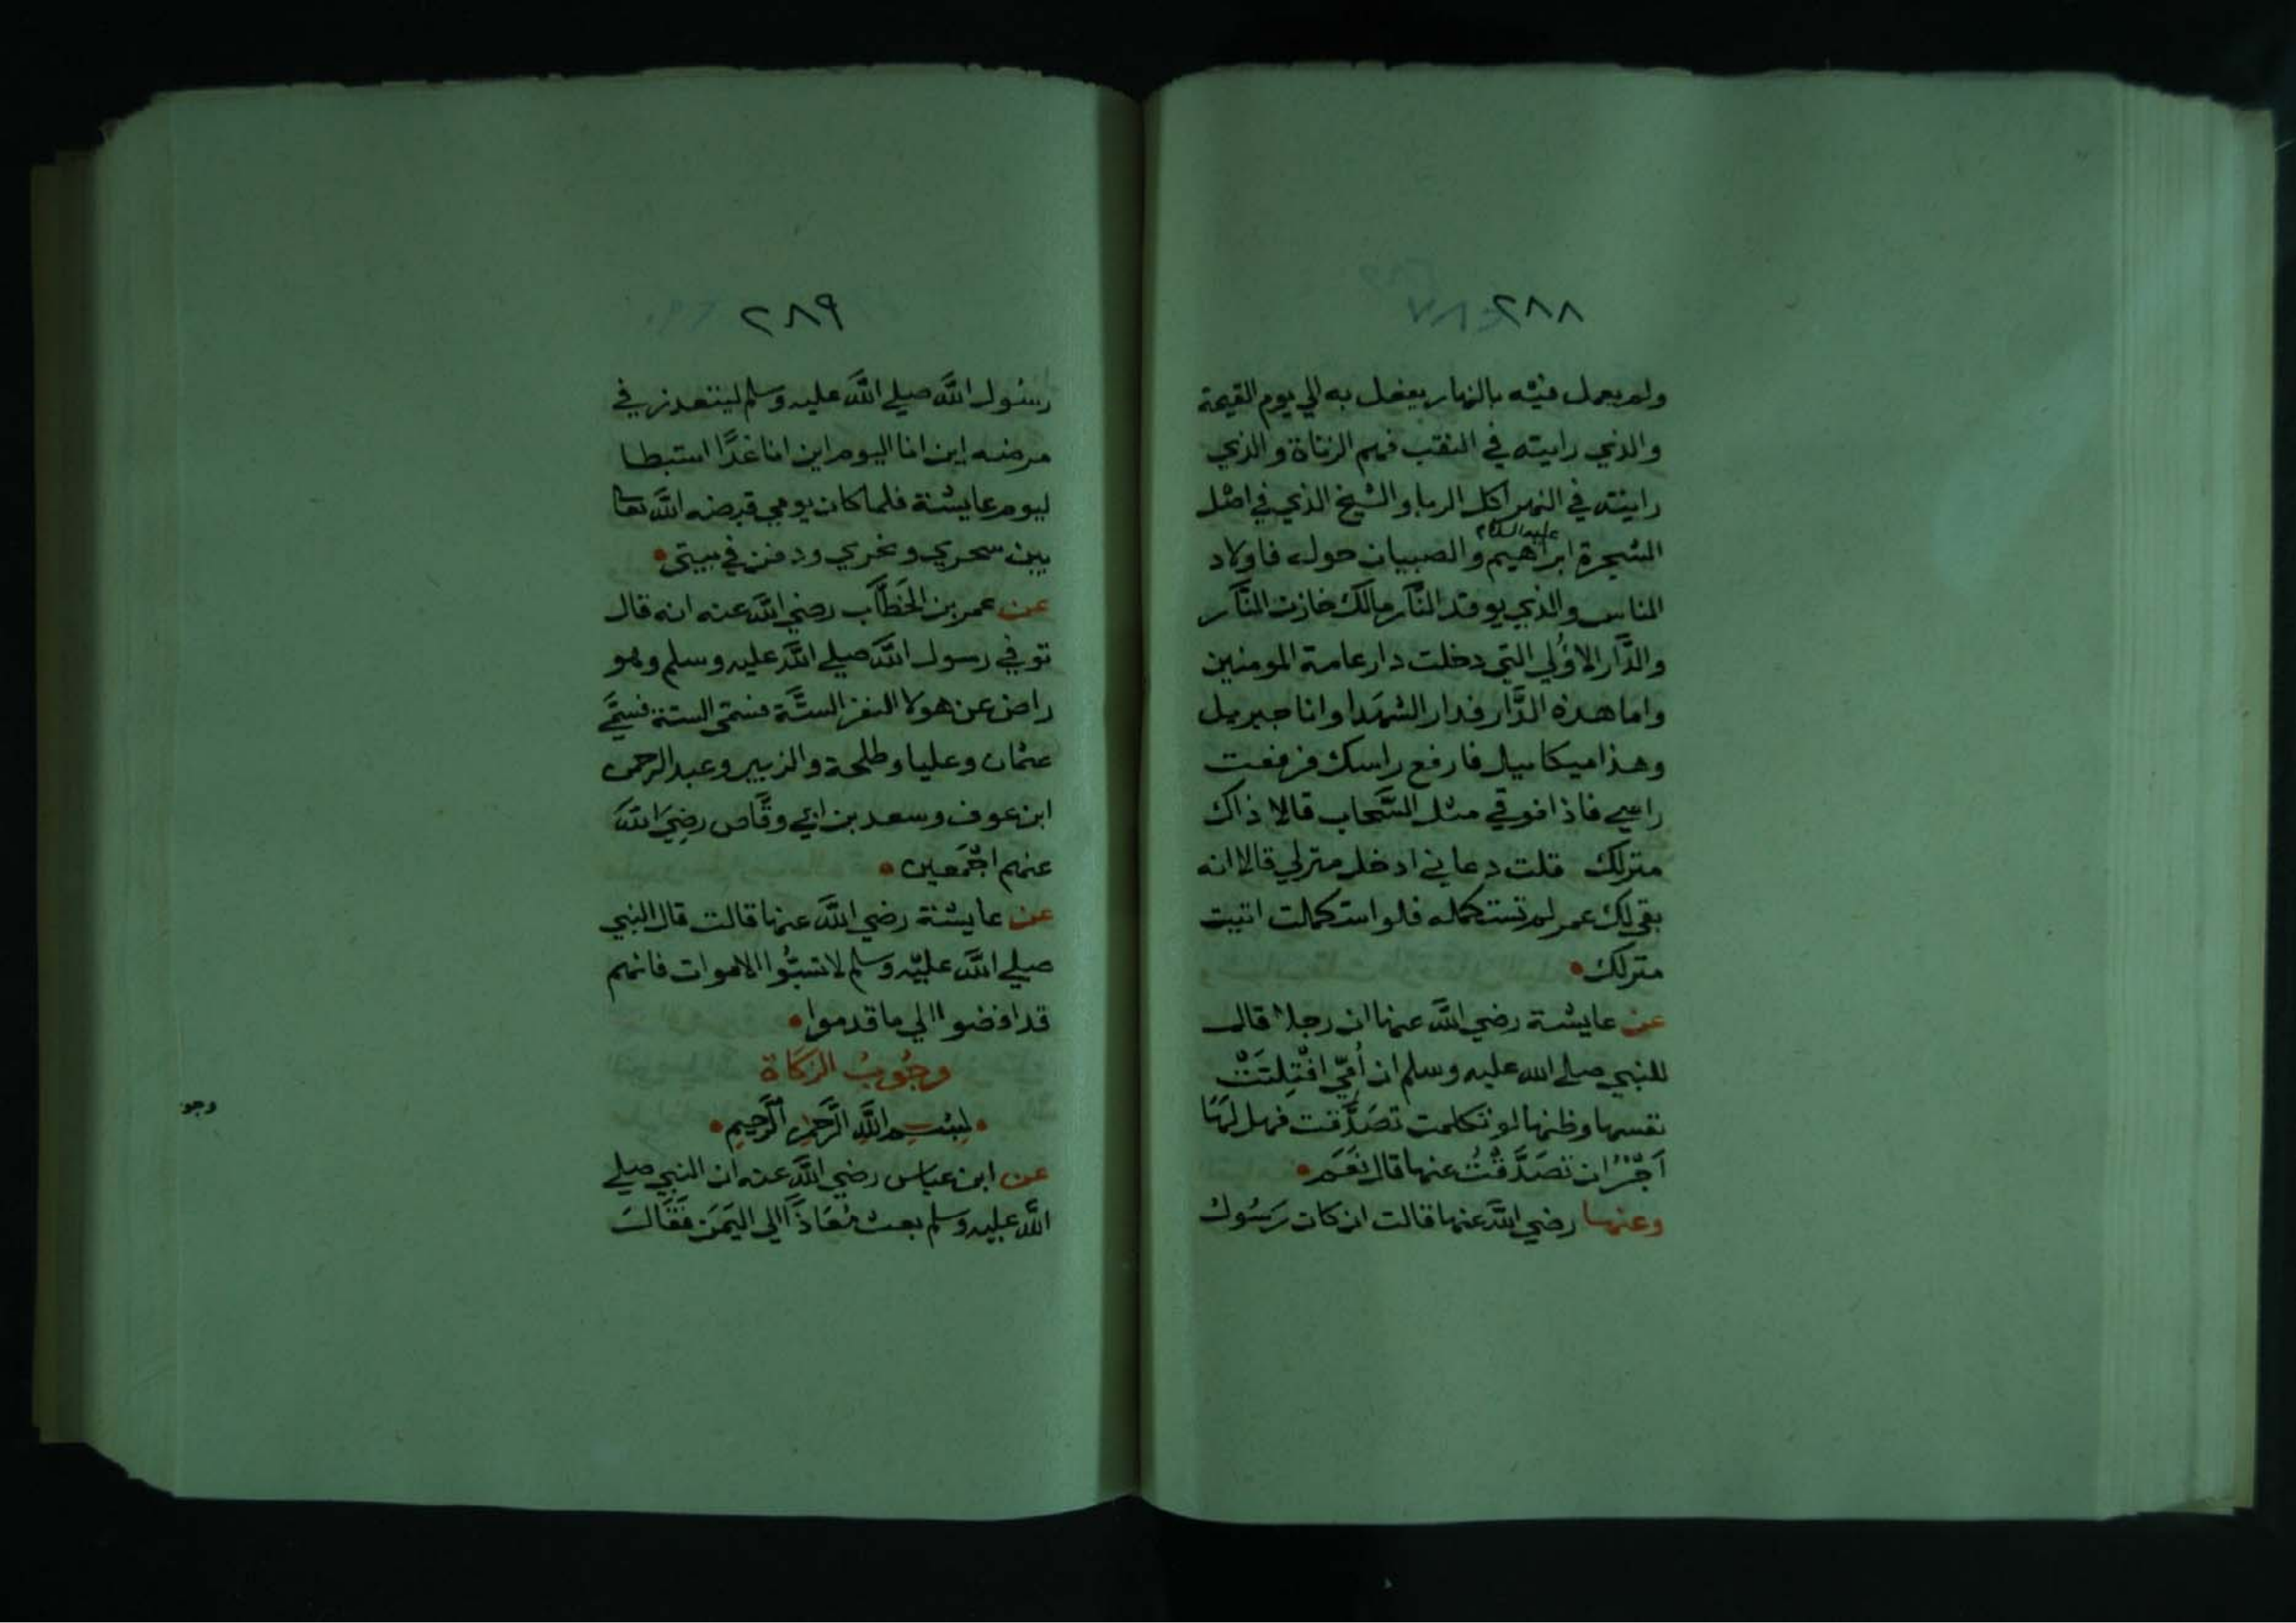 ٢٨٨
ولم يعمل فيه بالنهار يفعل به الي يوم القيمة
والذي رايته في النقب فهم الزناة والذي
رايته في النهر اكل الربا والشيخ الذي في اصل
عليه السلام
الشجرة ابراهيم والصبيان حوله فاولاد
الناس والذي يوقد النار مالك خازن النار
والدار الاولي التي دخلت دار عامة المومنين
واما هذه الدار فدار الشهدا وانا جبريل
وهذا ميكاييل فارفع راسك فرفعت
راسي فاذا فوقي مثل السحاب قالا ذاك
منزلك قلت دعاني ادخل منزلي قالا انه
بقي لك عمر لم تستكمله فلو استكملت اتيت
منزلك
عن عايشة رضي الله عنها ان رجلا قال
للنبي صلي الله عليه وسلم ان أمي افتلتت
نفسها وظنها لو تكلمت تصدقت فهل لها
اجر ان تصدقت عنها قال نعم
وعنها رضي الله عنها قالت ان كان رسول
٢٨٩
رسول الله صلي الله عليه وسلم ليتعذر في
مرضه اين انا اليوم اين انا غدًا استبطا
ليوم عايشة فلما كان يومي قبضه الله تعا
بين سحري ونحري ودفن في بيتي
عن عمر بن الخطاب رضي الله عنه انه قال
توفي رسول الله صلي الله عليه وسلم وهو
راض عن هولا النفر الستة فسمي الستة فسمي
عثمان وعليا وطلحة والزبير وعبد الرحمن
ابن عوف وسعد بن ابي وقاص رضي الله
عنهم اجمعين
عن عايشة رضي الله عنها قالت قال النبي
صلي الله عليه وسلم لا تسبوا الاموات فانهم
قد افضوا الي ما قدموا
وجوب الزكاة
بسم الله الرحمن الرحيم
عن ابن عباس رضي الله عنه ان النبي صلي
الله عليه وسلم بعث معاذا الي اليمن فقال
وجو